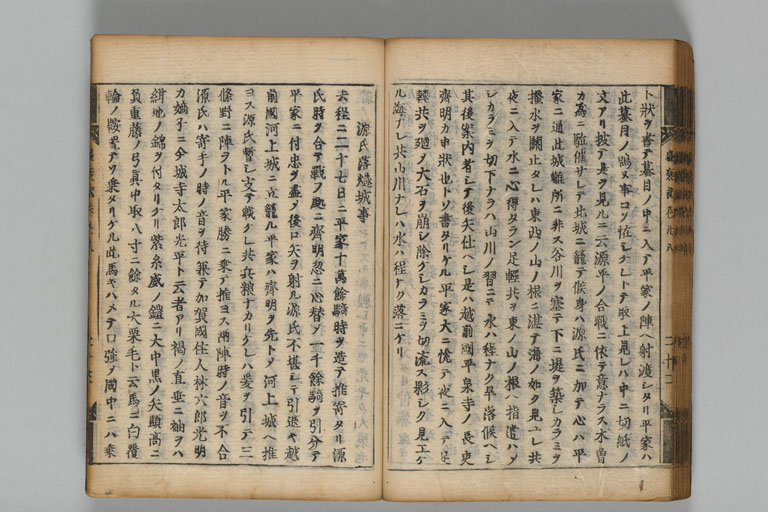 ト狀ヲ書テ蟇目ノ中ニ入テ平家ノ陣ヘ射渡シタリ平家ハ
此蟇目ノ鳴ヌ事コソ怪シケレトテ取上見レハ中ニ切紙ノ
文アリ披テ是ヲ見ルニ云源平ノ合戰ニ依テ意ナラス木曾
カ為ニ駈催サレテ此城ニ籠テ候身ハ源氏ニ加テ心ハ平
家ニ通此城難所ニ非ス谷川ヲ塞テ下ニ堤ヲ築シカラミヲ
撥水ヲ關止タレハ東西ノ山ノ根ニ湛テ海ノ如ク見ユレ共
夜ニ入テ水ニ心得タラン足輕共ヲ東ノ山ノ根ヘ指遣ハメ
シカラミヲ切下ナラハ山川ノ習ニテ水ハ程ナク早落候ヘシ
其後案内者シテ後矢仕ヘシ是ハ越前國平泉寺ノ長吏
齊明カ申狀也トソ書タリケル平家大ニ悦テ夜ニ入テ足
輕共ヲ廻ノ大石ヲ崩シ除ケシカラミヲ切流ス影シク見エケ
ル海ナレ共山川ナレハ水ハ程ナク落ニケリ
源氏落燧城事
去程ニ二十七日ニ平家十萬餘騎時ヲ造テ推寄タリ源
氏時ヲ合テ戰ノ處ニ齊明忽ニ心替ノ一千餘騎ヲ引分テ
平家ニ付忠ヲ盡ノ後ロ矢ヲ射ル源氏不堪シテ引退キ越
前國河上城ニ立籠ル平家ハ齊明ヲ先トノ河上城ヘ推
ヨス源氏暫シ支テ戰ケレ共兵粮ナカリケレハ爰ヲ引テ三
條野ニ陣ヲトル平家勝ニ乗テ推ヨス兩陣時ノ音ヲ不合
源氏ハ寄手ノ時ノ音ヲ待兼テ加賀國住人林六郎光明
カ嫡子ニ今城寺太郎光平ト云者アリ褐ノ直垂ニ袖ヲハ
紺地ノ錦ヲ付タリケリ紫糸威ノ鎧ニ大中黒ノ矢頭高ニ
負重藤ノ弓眞中取八寸ニ餘タル大栗毛ト云馬ニ白覆
輪ノ鞍置テソ乗タリケル此馬キハメテ口強ノ國中ニハ乗